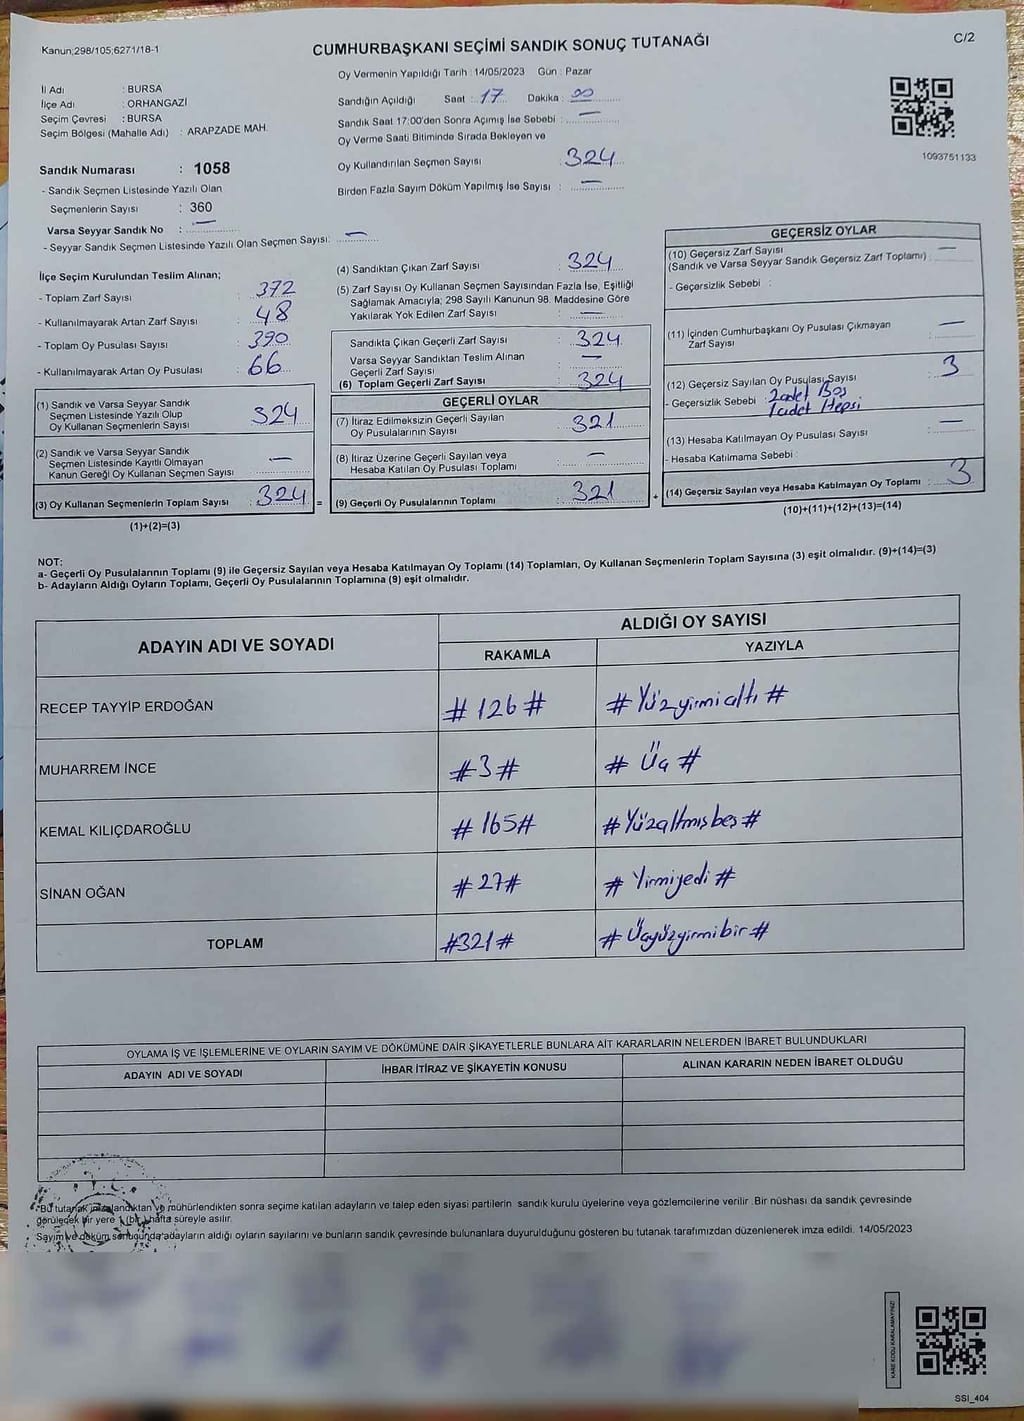 Kanun;298/105;6271/18-1
CUMHURBAŞKANI SEÇİMİ SANDIK SONUÇ TUTANAĞI
C/2
Oy Vermenin Yapıldığı Tarih : 14/05/2023 Gün : Pazar
İl Adı : BURSA
İlçe Adı : ORHANGAZİ
Seçim Çevresi : BURSA
Seçim Bölgesi (Mahalle Adı) : ARAPZADE MAH.
Sandığın Açıldığı Saat : 17 Dakika : 00
Sandık Saat 17:00'den Sonra Açımış İse Sebebi : —
Oy Verme Saati Bitiminde Sırada Bekleyen ve
Oy Kullandırılan Seçmen Sayısı : 324
Birden Fazla Sayım Döküm Yapılmış İse Sayısı : —
1093751133
Sandık Numarası : 1058
- Sandık Seçmen Listesinde Yazılı Olan
Seçmenlerin Sayısı : 360
Varsa Seyyar Sandık No : —
- Seyyar Sandık Seçmen Listesinde Yazılı Olan Seçmen Sayısı: —
İlçe Seçim Kurulundan Teslim Alınan;
- Toplam Zarf Sayısı : 372
- Kullanılmayarak Artan Zarf Sayısı : 48
- Toplam Oy Pusulası Sayısı : 390
- Kullanılmayarak Artan Oy Pusulası : 66
(1) Sandık ve Varsa Seyyar Sandık
Seçmen Listesinde Yazılı Olup
Oy Kullanan Seçmenlerin Sayısı : 324
(2) Sandık ve Varsa Seyyar Sandık
Seçmen Listesinde Kayıtlı Olmayan
Kanun Gereği Oy Kullanan Seçmen Sayısı : —
(3) Oy Kullanan Seçmenlerin Toplam Sayısı : 324 =
(1)+(2)=(3)
(4) Sandıktan Çıkan Zarf Sayısı : 324
(5) Zarf Sayısı Oy Kullanan Seçmen Sayısından Fazla İse, Eşitliği
Sağlamak Amacıyla; 298 Sayılı Kanunun 98. Maddesine Göre
Yakılarak Yok Edilen Zarf Sayısı : —
Sandıkta Çıkan Geçerli Zarf Sayısı : 324
Varsa Seyyar Sandıktan Teslim Alınan
Geçerli Zarf Sayısı : —
(6) Toplam Geçerli Zarf Sayısı : 324
GEÇERLİ OYLAR
(7) İtiraz Edilmeksizin Geçerli Sayılan
Oy Pusulalarının Sayısı : 321
(8) İtiraz Üzerine Geçerli Sayılan veya
Hesaba Katılan Oy Pusulası Toplamı : —
(9) Geçerli Oy Pusulalarının Toplamı : 321 +
GEÇERSİZ OYLAR
(10) Geçersiz Zarf Sayısı
(Sandık ve Varsa Seyyar Sandık Geçersiz Zarf Toplamı) : —
- Geçersizlik Sebebi :
(11) İçinden Cumhurbaşkanı Oy Pusulası Çıkmayan
Zarf Sayısı : —
(12) Geçersiz Sayılan Oy Pusulası Sayısı : 3
- Geçersizlik Sebebi : 2 adet Boş
1 adet Hepsi
(13) Hesaba Katılmayan Oy Pusulası Sayısı : —
- Hesaba Katılmama Sebebi :
(14) Geçersiz Sayılan veya Hesaba Katılmayan Oy Toplamı : 3
(10)+(11)+(12)+(13)=(14)
NOT:
a- Geçerli Oy Pusulalarının Toplamı (9) ile Geçersiz Sayılan veya Hesaba Katılmayan Oy Toplamı (14) Toplamları, Oy Kullanan Seçmenlerin Toplam Sayısına (3) eşit olmalıdır. (9)+(14)=(3)
b- Adayların Aldığı Oyların Toplamı, Geçerli Oy Pusulalarının Toplamına (9) eşit olmalıdır.
ADAYIN ADI VE SOYADI
ALDIĞI OY SAYISI
RAKAMLA YAZIYLA
RECEP TAYYİP ERDOĞAN # 126 # # Yüzyirmialtı #
MUHARREM İNCE #3# # Üç #
KEMAL KILIÇDAROĞLU # 165# #Yüzaltmışbeş#
SİNAN OĞAN # 27# # Yirmiyedi #
TOPLAM #321 # # Üçyüzyirmibir #
OYLAMA İŞ VE İŞLEMLERİNE VE OYLARIN SAYIM VE DÖKÜMÜNE DAİR ŞİKAYETLERLE BUNLARA AİT KARARLARIN NELERDEN İBARET BULUNDUKLARI
ADAYIN ADI VE SOYADI İHBAR İTİRAZ VE ŞİKAYETİN KONUSU ALINAN KARARIN NEDEN İBARET OLDUĞU
Bu tutanak imzalandıktan ve mühürlendikten sonra seçime katılan adayların ve talep eden siyasi partilerin sandık kurulu üyelerine veya gözlemcilerine verilir. Bir nüshası da sandık çevresinde
görülecek bir yere 1 (bir) hafta süreyle asılır.
Sayım ve döküm sonucunda adayların aldığı oyların sayılarını ve bunların sandık çevresinde bulunanlara duyurulduğunu gösteren bu tutanak tarafımızdan düzenlenerek imza edildi. 14/05/2023
KARE KODU KARALAMAYINIZ!
SSI_404